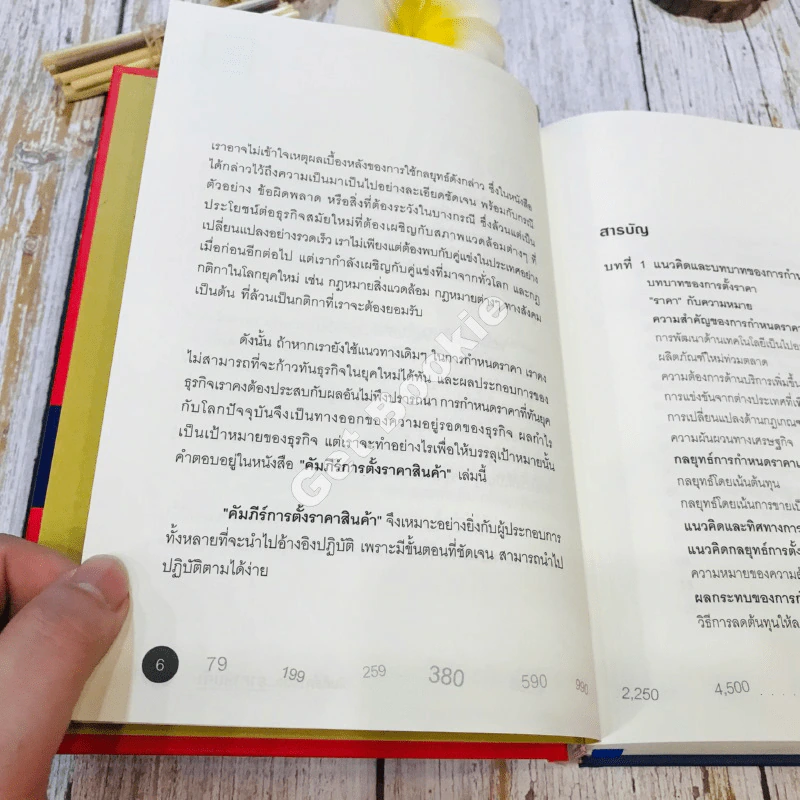 เราอาจไม่เข้าใจเหตุผลเบื้องหลังของการใช้กลยุทธ์ดังกล่าว ซึ่งในหนังสือ
ได้กล่าวไว้ถึงความเป็นมาเป็นไปอย่างละเอียดชัดเจน พร้อมกับกรณี
ตัวอย่าง ข้อผิดพลาด หรือสิ่งที่ต้องระวังในบางกรณี ซึ่งล้วนแต่เป็น
ประโยชน์ต่อธุรกิจสมัยใหม่ที่ต้องเผชิญกับสภาพแวดล้อมต่างๆ ที่
เปลี่ยนแปลงอย่างรวดเร็ว เราไม่เพียงแต่ต้องพบกับคู่แข่งในประเทศอย่าง
เมื่อก่อนอีกต่อไป แต่เรากำลังเผชิญกับคู่แข่งที่มาจากทั่วโลก และกฎ
กติกาในโลกยุคใหม่ เช่น กฎหมายสิ่งแวดล้อม กฎหมายต่างๆ ทางสังคม
เป็นต้น ที่ล้วนเป็นกติกาที่เราจะต้องยอมรับ
ดังนั้น ถ้าหากเรายังใช้แนวทางเดิมๆ ในการกำหนดราคา เราคง
ไม่สามารถที่จะก้าวทันธุรกิจในยุคใหม่ได้ทัน และผลประกอบการของ
ธุรกิจเราคงต้องประสบกับผลอันไม่พึงปรารถนา การกำหนดราคาที่ทันยุค
กับโลกปัจจุบันจึงเป็นทางออกของความอยู่รอดของธุรกิจ ผลกำไร
เป็นเป้าหมายของธุรกิจ แต่เราจะทำอย่างไรเพื่อให้บรรลุเป้าหมายนั้น
คำตอบอยู่ในหนังสือ "คัมภีร์การตั้งราคาสินค้า" เล่มนี้
"คัมภีร์การตั้งราคาสินค้า" จึงเหมาะอย่างยิ่งกับผู้ประกอบการ
ทั้งหลายที่จะนำไปอ้างอิงปฏิบัติ เพราะมีขั้นตอนที่ชัดเจน สามารถนำไป
ปฏิบัติตามได้ง่าย
6 79 199 259 380 590 990
Get Bookie
สารบัญ
บทที่ 1 แนวคิดและบทบาทของการกำ
บทบาทของการตั้งราคา
"ราคา" กับความหมาย
ความสำคัญของการกำหนดราคา
การพัฒนาด้านเทคโนโลยีเป็นไปอ
ผลิตภัณฑ์ใหม่ท่วมตลาด
ความต้องการด้านบริการเพิ่มขึ้น
การแข่งขันจากต่างประเทศที่เพิ
การเปลี่ยนแปลงด้านกฎเกณฑ
ความผันผวนทางเศรษฐกิจ
กลยุทธ์การกำหนดราคาแ
กลยุทธ์โดยเน้นต้นทุน
กลยุทธ์โดยเน้นการขายเป็
แนวคิดและทิศทางการ
แนวคิดกลยุทธ์การตั้ง
ความหมายของความยื
ผลกระทบของการก
วิธีการลดต้นทุนให้ล
2,250 4,500 . . . .